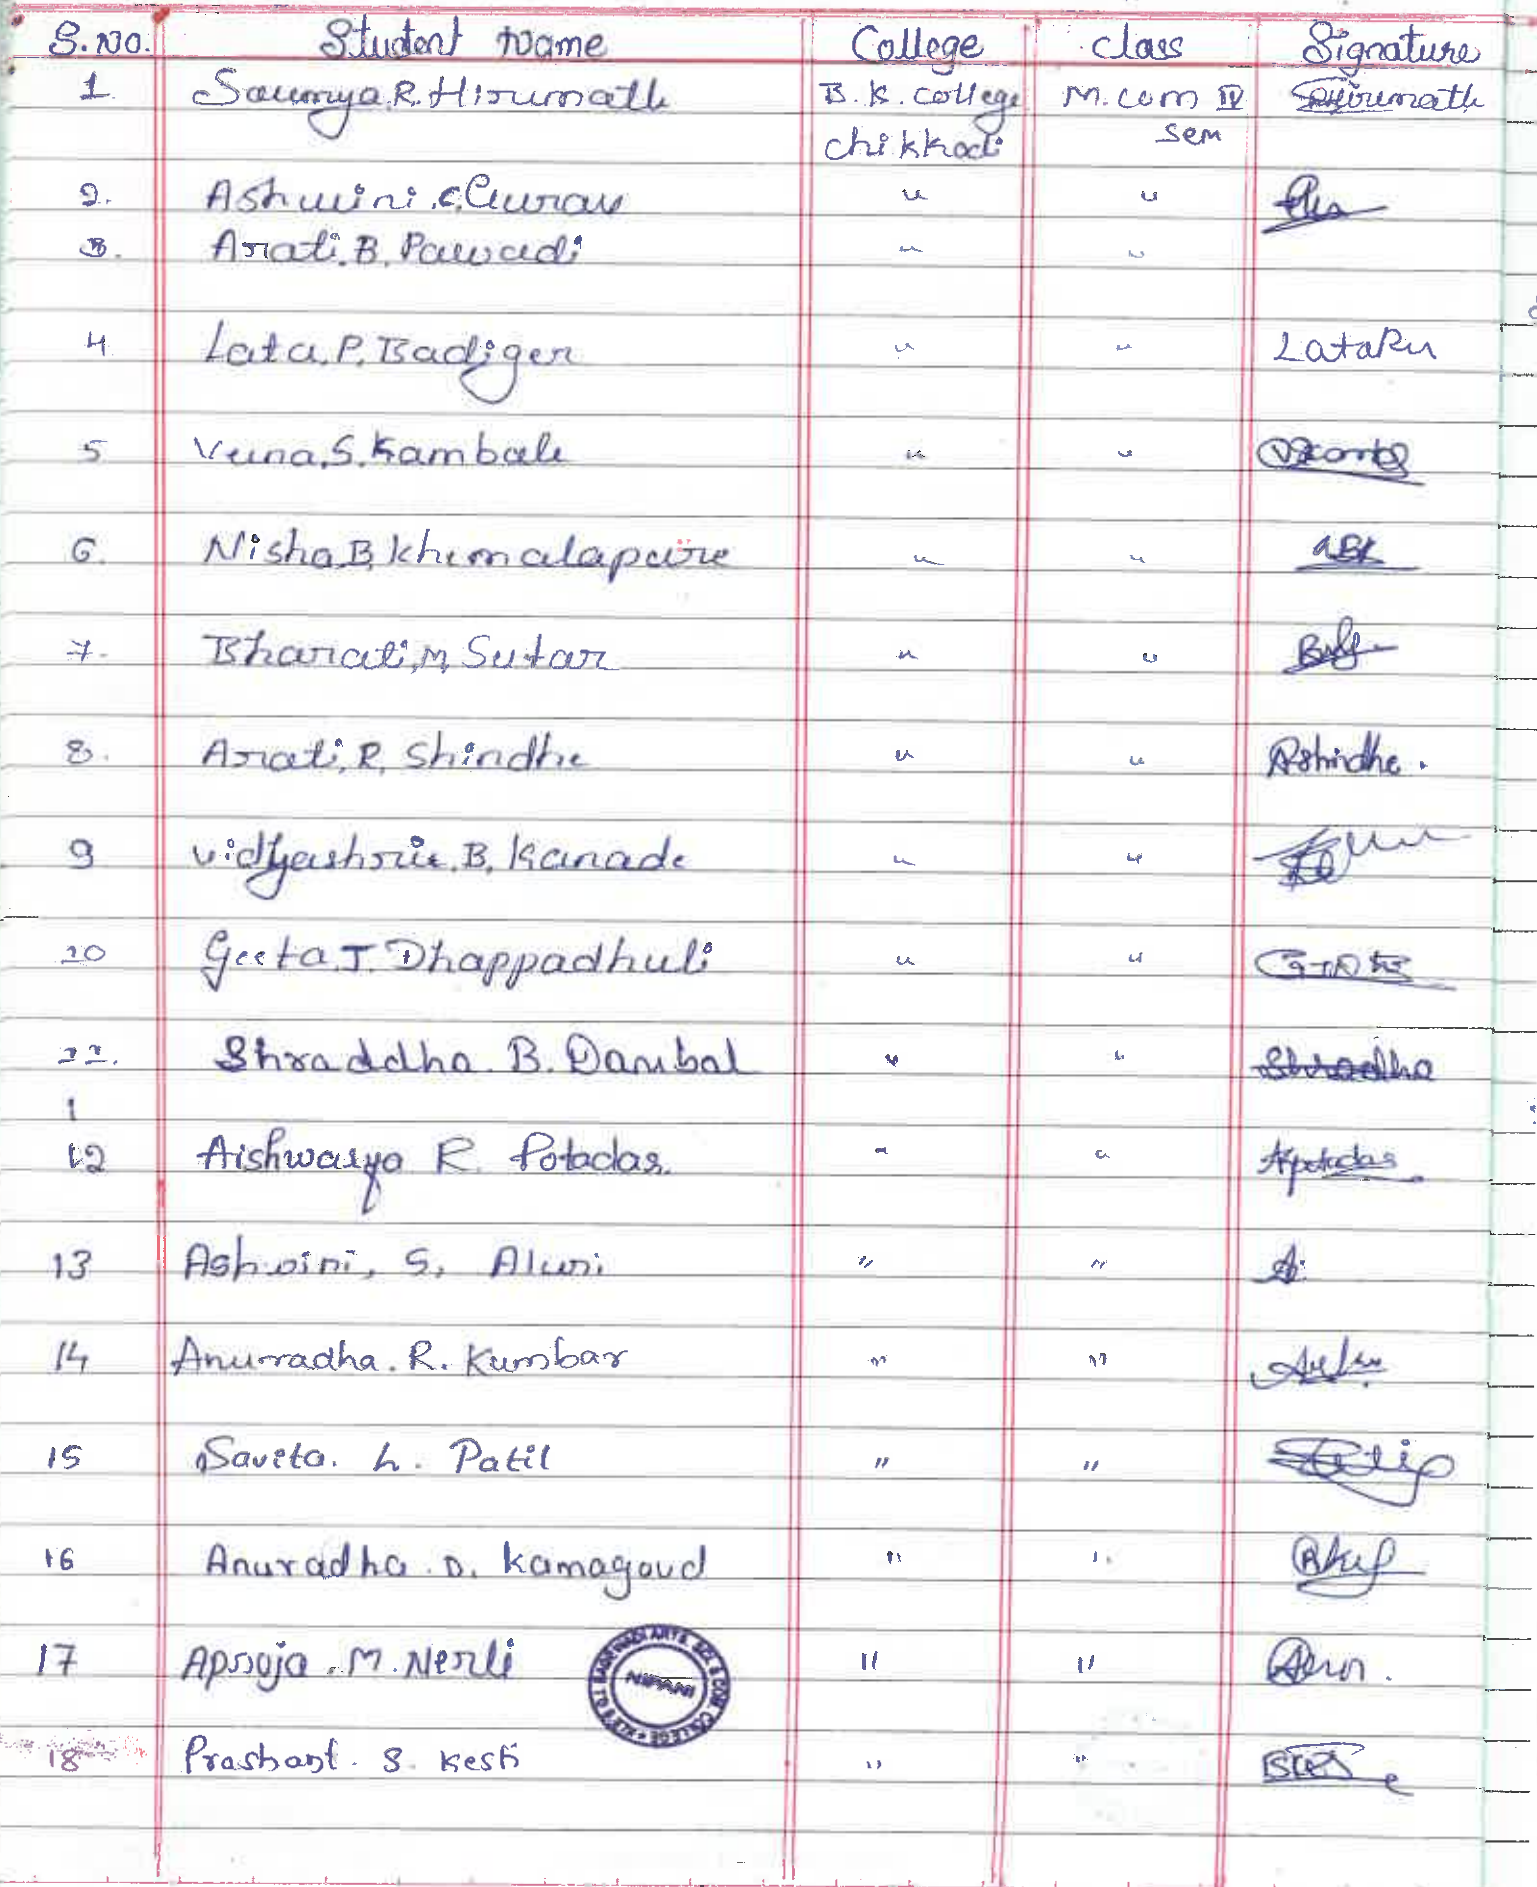 S.No. Student Name College class Signature
1 Soumya.R.Hiremath B.K.college M.com IV Hiremath
chikkodi sem
2. Ashwini.C.Gurav " "
3. Arati.B.Pawadi " "
4 Lata.P.Badiger " "
5 Veena.S.Kambale " "
6. Nisha.B.Khemalapure " "
7. Bharati.M.Sutar " "
8. Arati.R.Shindhe " " RShindhe.
9 vidyashrie.B.Kanade " "
10 Geeta.J.Dhappadhuli " "
11. Shraddha.B.Dambal " " Shradha
1
12 Aishwarya R. Potadar. " " Apotadar
13 Ashwini, S, Aluri " " A.
14 Anuradha.R.Kumbar " "
15 Savita. L. Patil " "
16 Anuradha.D.Kamagoud " "
17 Apsoja.M.Nerli " "
NIPANI
18 Prashant.S.Kesti " "